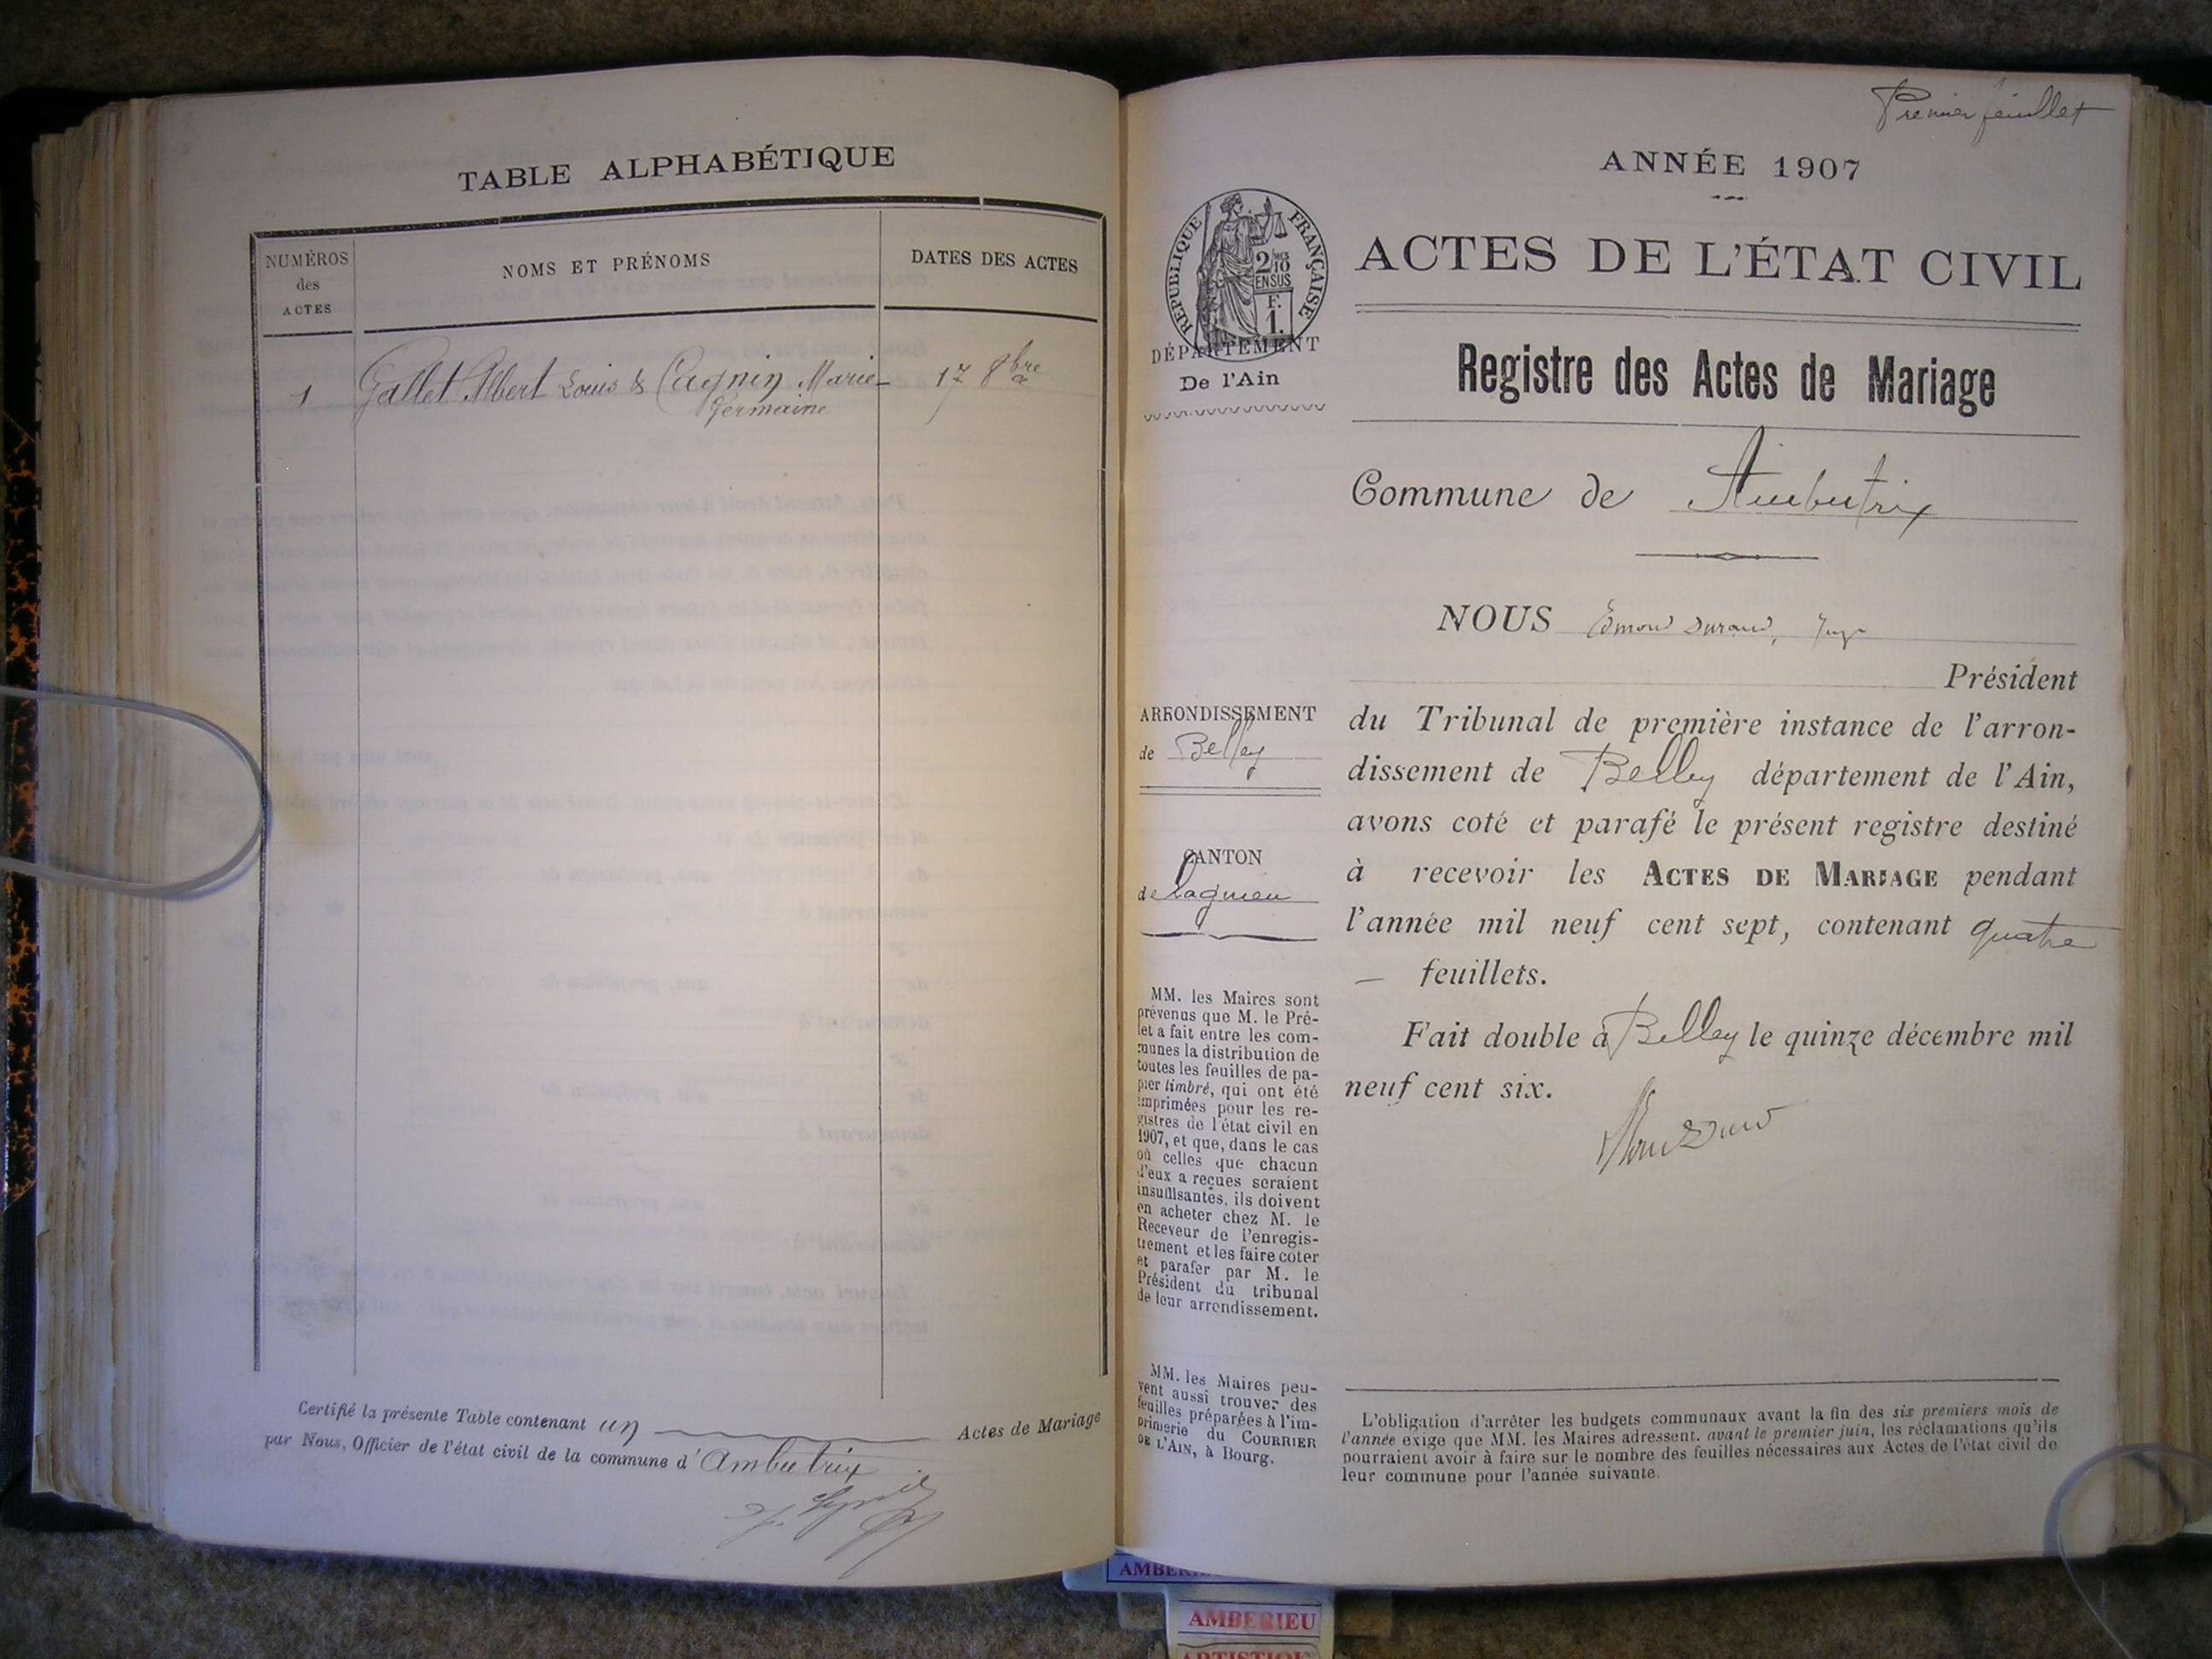 TABLE ALPHABÉTIQUE
NUMÉROS
des
ACTES
NOMS ET PRÉNOMS
DATES DES ACTES
1 Gallet Albert Louis & Cagnin Marie- 17 8bre
Germaine
Certifié la présente Table contenant un Actes de Mariage
par Nous, Officier de l'état civil de la commune d'Ambutrix
Premier feuillet
ANNÉE 1907
RÉPUBLIQUE FRANÇAISE
2/10
EN SUS
F.
1.
DÉPARTEMENT
De l'Ain
ACTES DE L'ÉTAT CIVIL
Registre des Actes de Mariage
Commune de Ambutrix
NOUS Edmond Durand, Juge
Président
du Tribunal de première instance de l'arron-
dissement de Belley département de l'Ain,
avons coté et parafé le présent registre destiné
à recevoir les ACTES DE MARIAGE pendant
l'année mil neuf cent sept, contenant quatre
— feuillets.
Fait double à Belley le quinze décembre mil
neuf cent six.
ARRONDISSEMENT
de Belley
CANTON
de Lagnieu
MM. les Maires sont
prévenus que M. le Pré-
fet a fait entre les com-
munes la distribution de
toutes les feuilles de pa-
pier timbré, qui ont été
imprimées pour les re-
gistres de l'état civil en
1907, et que, dans le cas
où celles que chacun
d'eux a reçues seraient
insuffisantes, ils doivent
en acheter chez M. le
Receveur de l'enregis-
trement et les faire coter
et parafer par M. le
Président du tribunal
de leur arrondissement.
MM. les Maires peu-
vent aussi trouver des
feuilles préparées à l'im-
primerie du COURRIER
DE L'AIN, à Bourg.
L'obligation d'arrêter les budgets communaux avant la fin des six premiers mois de
l'année exige que MM. les Maires adressent, avant le premier juin, les réclamations qu'ils
pourraient avoir à faire sur le nombre des feuilles nécessaires aux Actes de l'état civil de
leur commune pour l'année suivante.
AMBERIEU